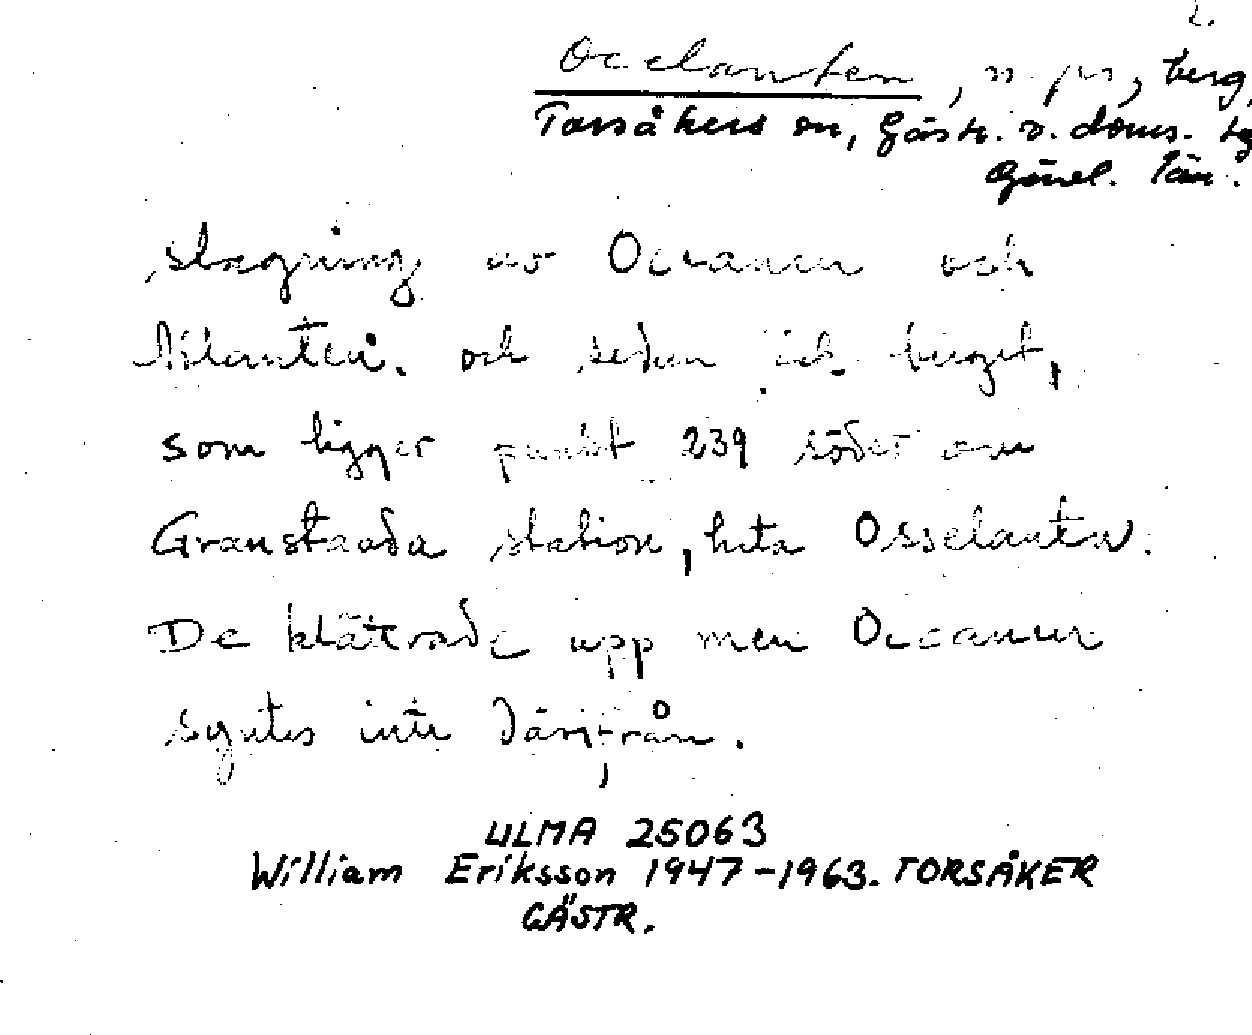 2.
Ocelanten, n. pr., berg,
Torsåkers sn, Gästr. v. doms. tg
Gävl. län.
slagning av Oceanen och
Atlanten. och sedan fick berget,
som ligger punkt 239 söder om
Granstanda station, heta Osselanten.
De klättrade upp men Oceanen
syntes inte därifrån.
ULMA 25063
William Eriksson 1947-1963. TORSÅKER
GÄSTR.